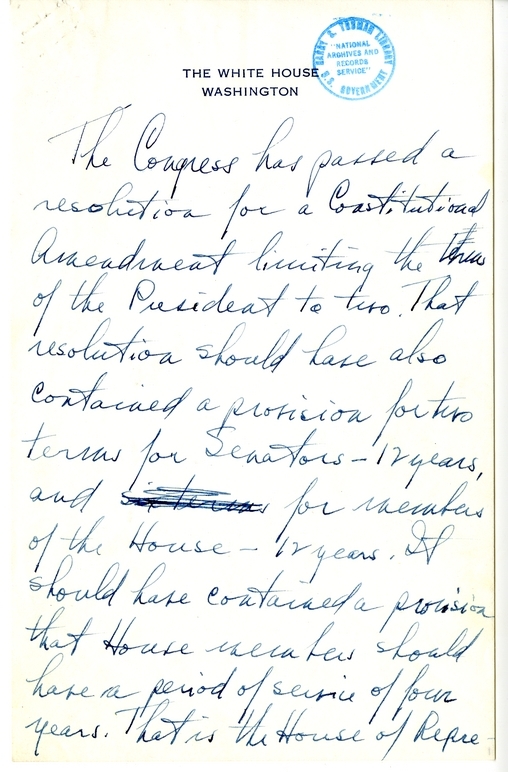 THE WHITE HOUSE
WASHINGTON
HARRY S. TRUMAN LIBRARY
"NATIONAL
ARCHIVES AND
RECORDS
SERVICE"
U.S. GOVERNMENT
The Congress has passed a
resolution for a Constitutional
Amendment limiting the terms
of the President to two. That
resolution should have also
contained a provision for two
terms for Senators – 12 years,
and six terms for members
of the House – 12 years. It
should have contained a provision
that House members should
have a period of service of four
years. That is the House of Repre-